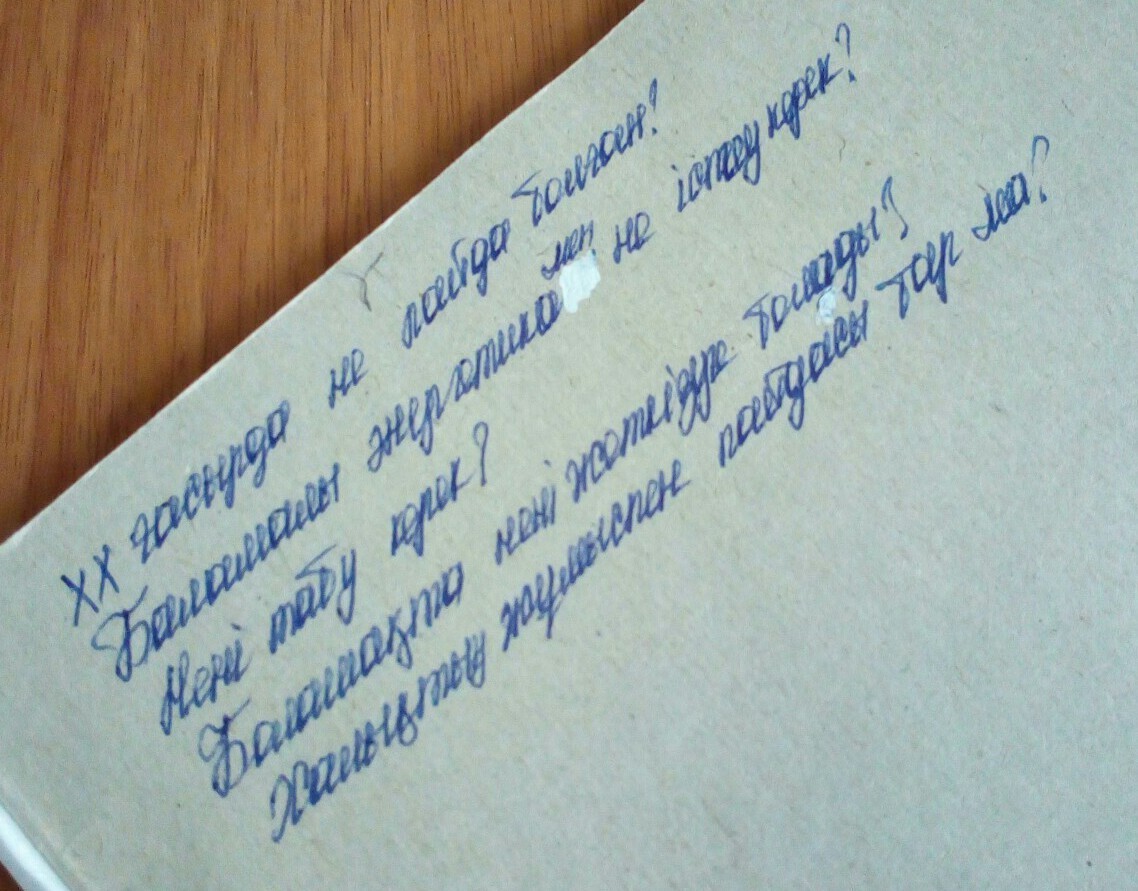 XX ғасырда не пайда болған?
Баламалы энергетика мен не істеу керек?
Нені табу керек?
Болашақта нені жетілдіруге болады?
Халықтың жұмыспен пайдасы бар ма?